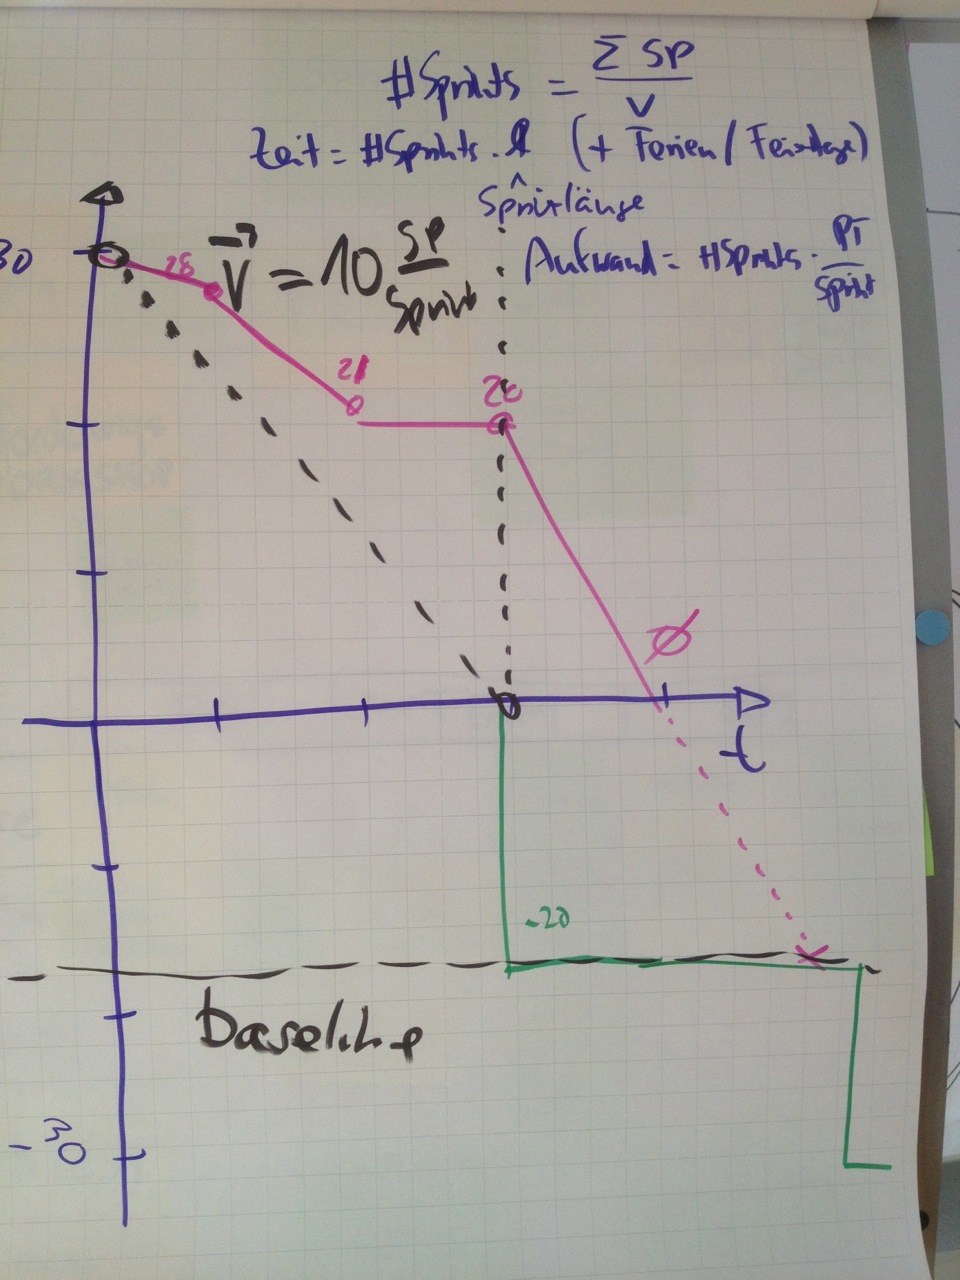 #Sprints = Σ SP / V
Zeit = #Sprints · l (+ Ferien / Feiertage)
^
Sprintlänge
Aufwand = #Sprints · PT / Sprint
30
28
V = 10 SP / Sprint
21
20
Ø
t
-20
Baseline
-30